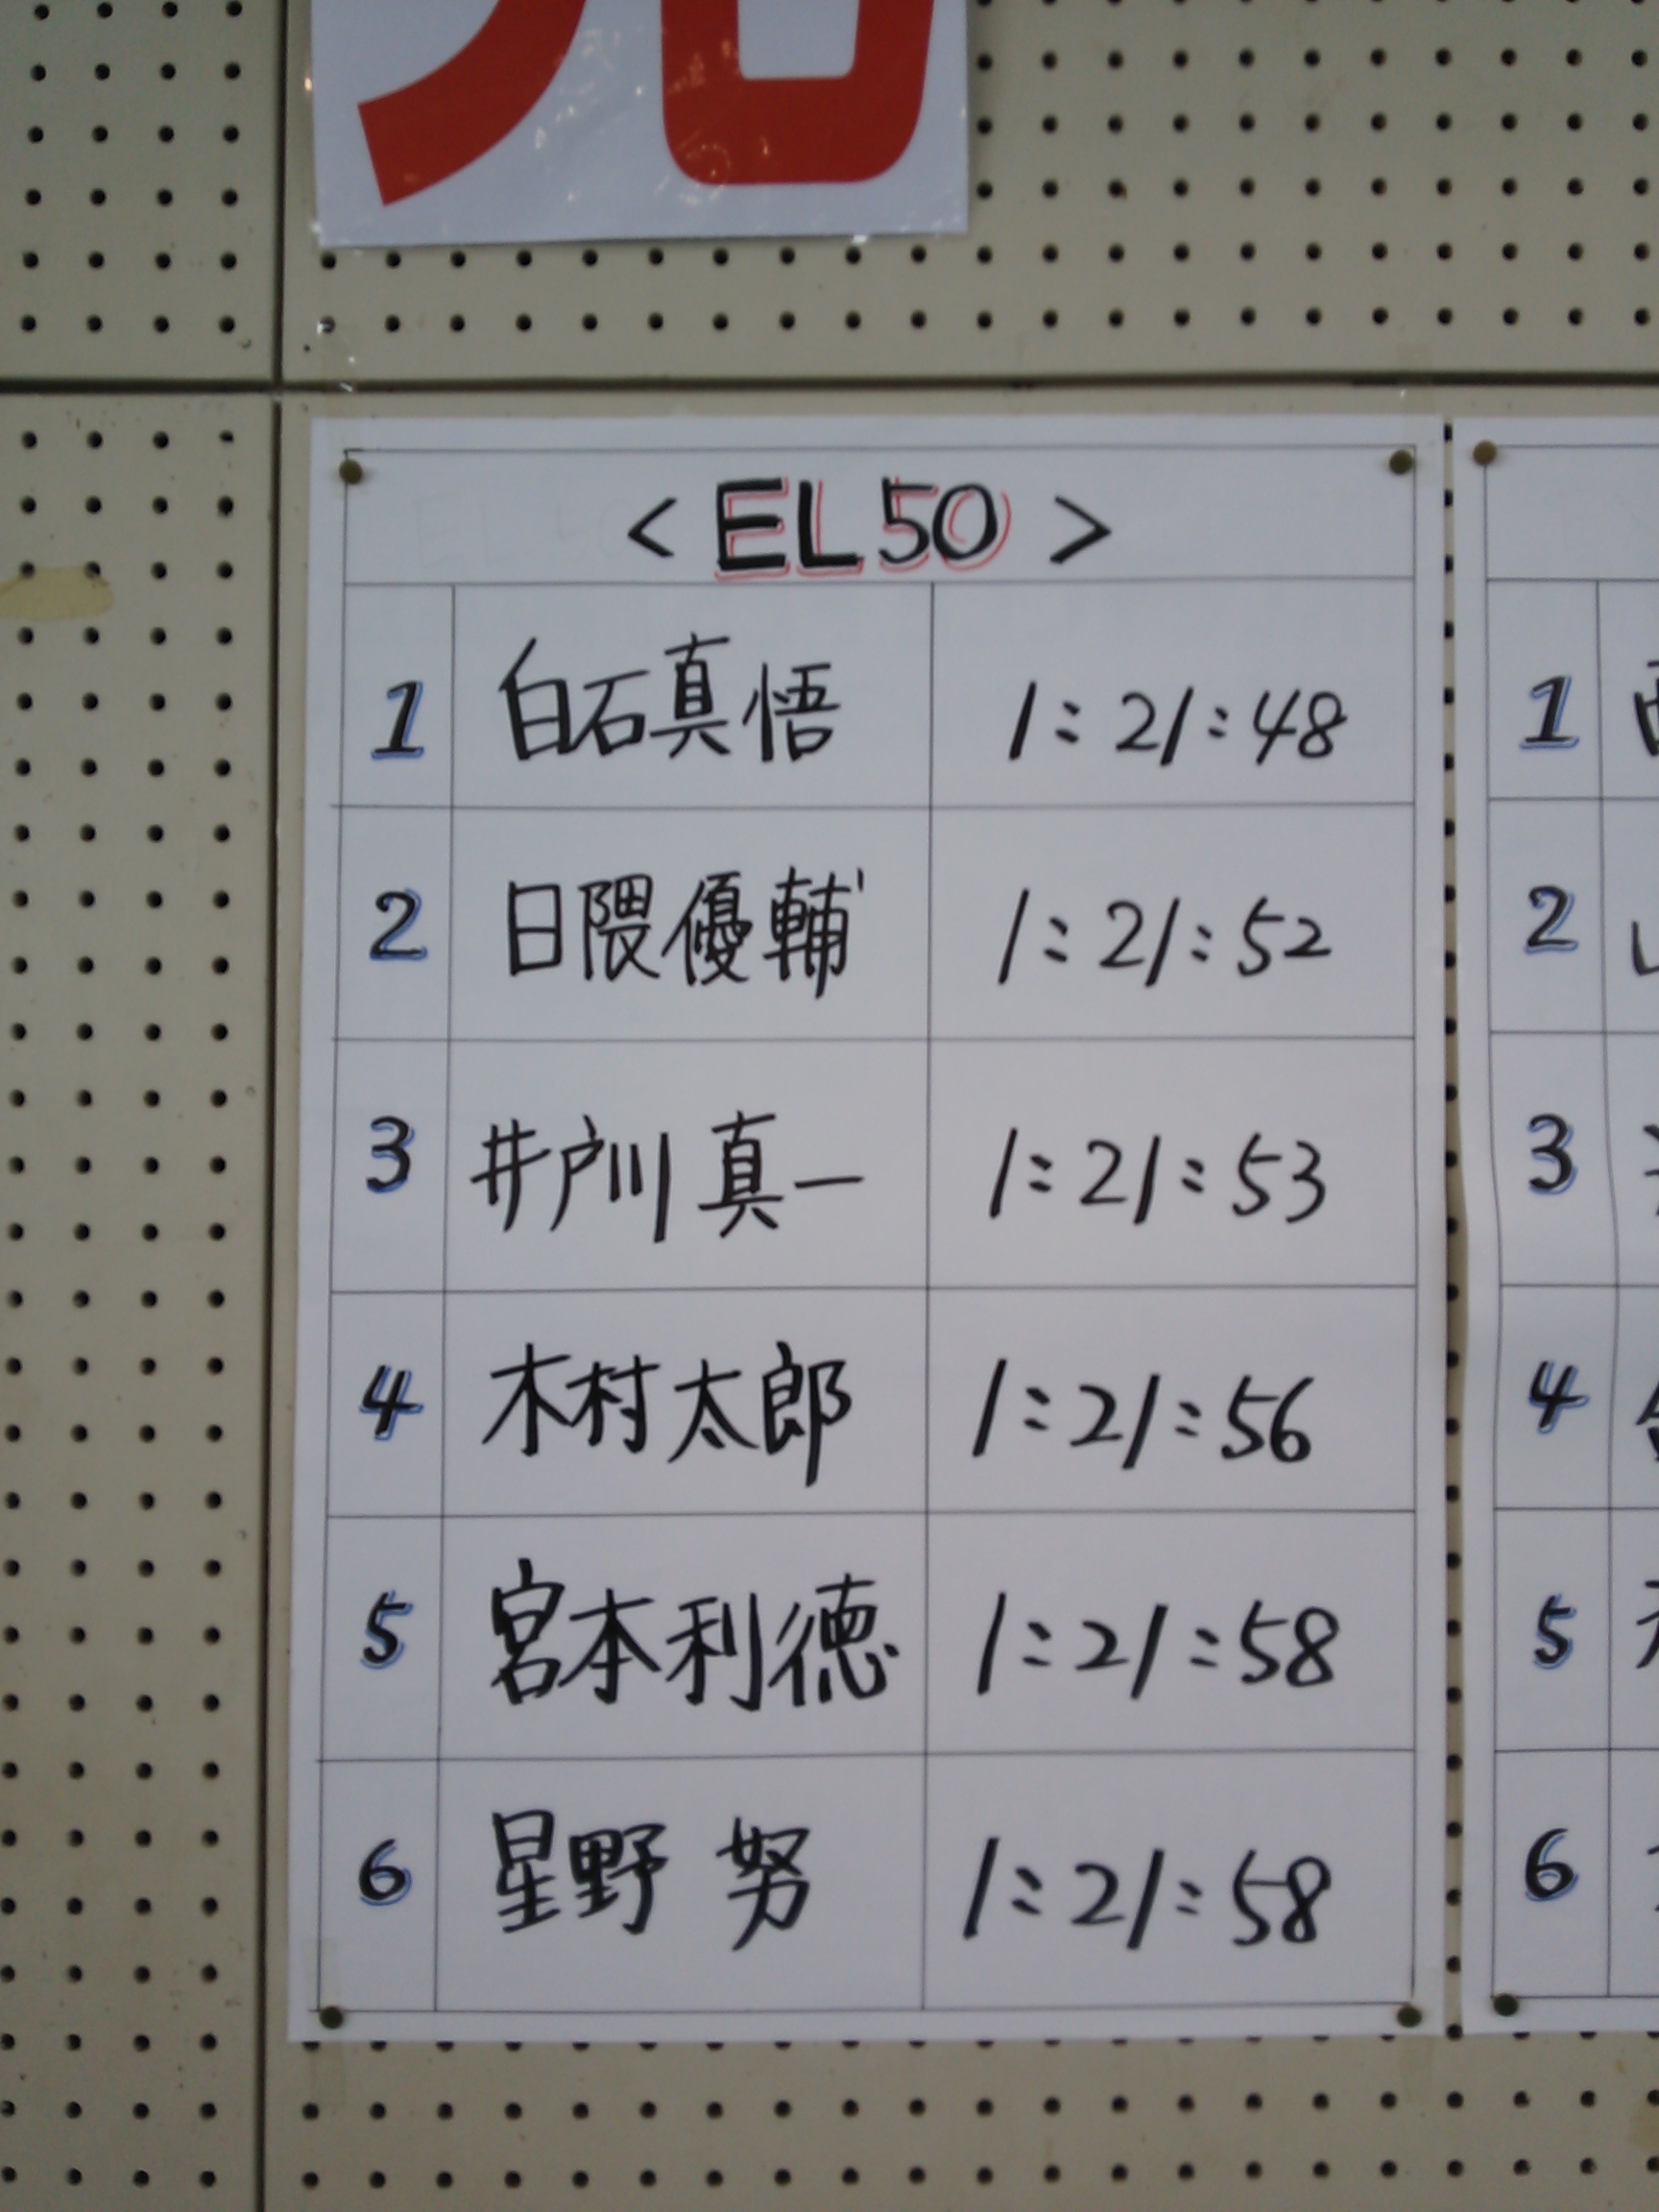 < EL50 >
1 白石真悟 1:21:48
2 日隈優輔 1:21:52
3 井戸川真一 1:21:53
4 木村太郎 1:21:56
5 宮本利徳 1:21:58
6 星野 努 1:21:58
1
2
3
4
5
6